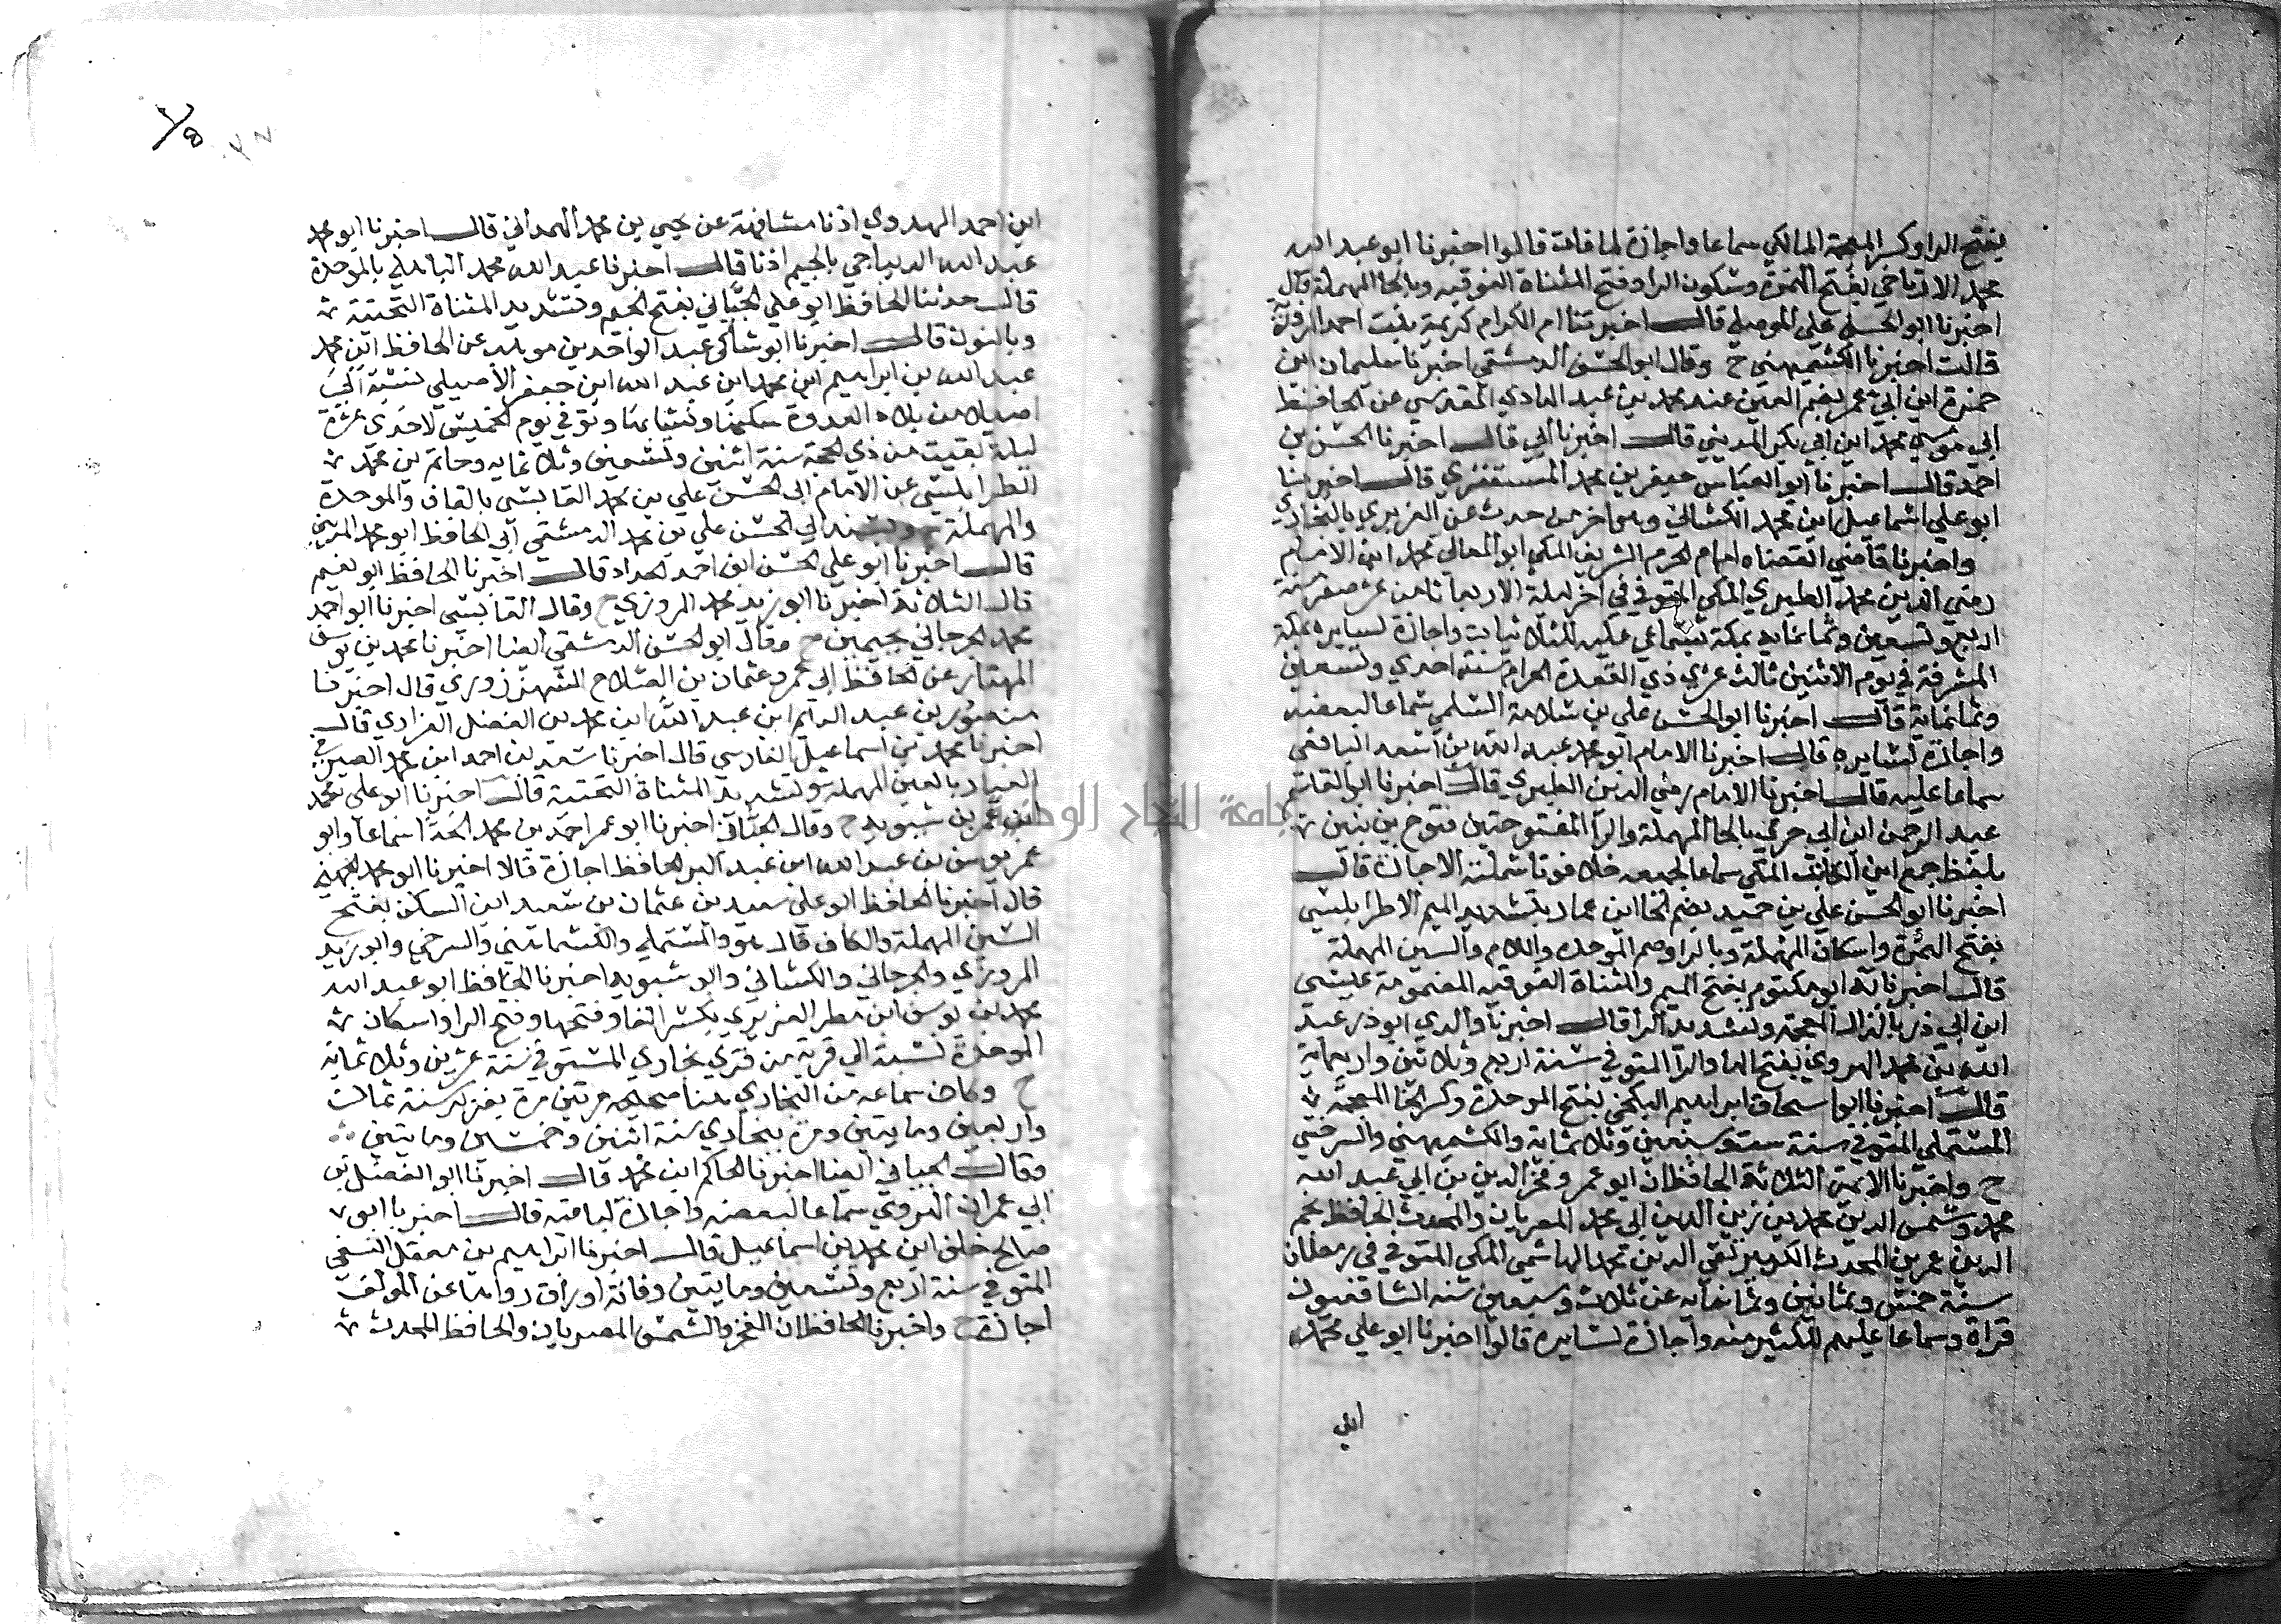 بفتح الرا وكسر المعجمة المالكي سماعا واجازة لما فات قالوا اخبرنا ابو عبد الله
محمد الارتاحي بفتح الهمزة وسكون الرا وفتح المثناة الفوقيه وبالحا المهملة قال
اخبرنا ابو الحسن علي الموصلي قال اخبرتنا ام الكرام كريمة بنت احمد المروزية
قالت اخبرنا الكشميهني ح وقال ابو الحسن الدمشقي اخبرنا سليمان ابن
حمزة ابن ابي عمر بضم العين عند محمد بن عبد الهادي المقدسي عن الحافظ
ابي موسي محمد ابن ابي بكر المديني قال اخبرنا ابي قال اخبرنا الحسن بن
احمد قال اخبرنا ابو العباس جعفر بن محمد المستغفري قال اخبرنا
ابو علي اسماعيل ابن محمد الكشاني وهو اخر من حدث عن الفربري بالبخاري
واخبرنا قاضي القضاة امام الحرم الشريف المكي ابو المعالي محمد ابن الامام
رضي الدين محمد الطبري المكي المتوفي في اخر ليلة الاربعا ثامن عشر صفر سنة
اربع وتسعين وثمانمايه بمكة بسماعي عليه لثلاثياته واجازة لسايره بمكة
المشرفة في يوم الاثنين ثالث عشري ذي القعدة الحرام سنة احدي وتسعين
وثمانماية قال اخبرنا ابو الحسن علي بن سلامة السلمي سماعا لبعضه
واجازة لسايره قال اخبرنا الامام ابو محمد عبد الله بن اسعد اليافعي
سماعا عليه قال اخبرنا الامام رضي الدين الطبري قال اخبرنا ابو القاسم
عبد الرحمن ابن ابي حرمي بالحا المهملة والرا المفتوحتين فتوح بن بنين
بلفظ جمع ابن الكاتب المكي سماعا لجميعه خلا فوتا شملته الاجازة قال
اخبرنا ابو الحسن علي بن حميد بضم الحا ابن عمار بتشديد الميم الاطرابلسي
بفتح الهمزة واسكان المهملة وبالرا وضم الموحده واللام والسين المهملة
قال اخبرنا به ابو مكتوم بفتح الميم والمثناة الفوقيه المضمومة عيسي
ابن ابي ذر بالذال المعجمة وتشديد الرا قال اخبرنا والدي ابو ذر عبد
الله بن محمد الهروي بفتح الها والرا المتوفي سنة اربع وثلاثين واربعماية
قال اخبرنا ابو اسحاق ابراهيم البلخي بفتح الموحدة وكسر الخا المعجمة
المستملي المتوفي سنة ست وسبعين وثلاثماية والكشميهني والسرخسي
ح واخبرنا الايمة الثلاثة الحافظان ابو عمرو فخر الدين بن ابي عبد الله
محمد وشمس الدين محمد بن زين الدين ابي محمد المصريان والمحدث الحافظ نجم
الدين عمر بن المحدث الكبير تقي الدين محمد الهاشمي المكي المتوفي في رمضان
سنة خمس وثمانين وثمانمايه عن ثلاث وسبعين سنه الشافعيون
قراة وسماعا عليهم للكثير منه واجازة لسايره قالوا اخبرنا ابو علي محمد
ابن
ابن احمد المهدوي اذنا مشافهة عن يحيي بن محمد الهمداني قال اخبرنا ابو محمد
عبد الله الديباجي بالجيم اذنا قال اخبرنا عبد الله محمد الباهلي بالموحدة
قال حدثنا الحافظ ابو علي الجياني بفتح الجيم وتشديد المثناة التحتية
وبالنون قال اخبرنا ابو شاكر عبد الواحد بن موهب عن الحافظ ابي محمد
عبد الله بن ابراهيم ابن محمد ابن عبد الله ابن جعفر الاصيلي نسبة الي
اصيلا من بلاد العدوة سكنها ونشا بها وتوفي يوم الخميس لاحدي عشرة
ليلة بقيت من ذي الحجة سنة اثنين وتسعين وثلاثمايه وحاتم بن محمد
الطرابلسي عن الامام ابي الحسن علي بن محمد القابسي بالقاف والموحدة
والمهملة ح وبسند ابي الحسن علي بن محمد الدمشقي الي الحافظ ابو محمد المديني
قال اخبرنا ابو علي الحسن ابن احمد الحداد قال اخبرنا الحافظ ابو نعيم
قال الثلاثة اخبرنا ابو زيد محمد المروزي ح وقال القابسي اخبرنا ابو احمد
محمد الجرجاني بجيمين ح وقال ابو الحسن الدمشقي ايضا اخبرنا محمد بن يوسف
المهتار عن الحافظ ابي عمرو عثمان بن الصلاح الشهرزوري قال اخبرنا
منصور بن عبد المنعم ابن عبد الله ابن محمد بن الفضل الفراوي قال
اخبرنا محمد بن اسماعيل الفارسي قال اخبرنا سعيد بن احمد ابن محمد الصيرفي
العيار بالعين المهملة وتشديد المثناة التحتية قال اخبرنا ابو علي محمد
ابن عمر بن شبويه ح وقال الجياني اخبرنا ابو عمر احمد بن محمد الحذا سماعا وابو
عمر يوسف بن عبد الله ابن عبد البر الحافظ اجازة قالا اخبرنا ابو محمد الجهني
قال اخبرنا الحافظ ابو علي سعيد بن عثمان بن سعيد ابن السكن بفتح
السين المهملة والكاف قال هو والمستملي والكشماهني والسرخسي وابو زيد
المروزي والجرجاني والكشاني وابو شبويه اخبرنا الحافظ ابو عبد الله
محمد بن يوسف ابن مطر الفربري بكسر الفا وفتحها وفتح الرا واسكان
الموحدة نسبة الي قرية من قري بخاري المتوفي سنة عشرين وثلاثماية
ح وكان سماعه من البخاري هذا صحيحه مرتين مرة بفربر سنة ثمان
واربعين ومايتين ومرة ببخاري سنة اثنين وخمسين ومايتين
وقال الجياني ايضا اخبرنا الحاكم ابن محمد قال اخبرنا ابو الفضل بن
ابي عمران الهروي سماعا لبعضه واجازة لباقيه قال اخبرنا ابو
صالح خلف ابن محمد بن اسماعيل قال اخبرنا ابراهيم بن معقل النسفي
المتوفي سنة اربع وتسعين ومايتين وفاته اوراق رواها عن المولف
اجازة ح واخبرنا الحافظان الفخر والشمس المصريان والحافظ المحدث
جامعة النجاح الوطنية